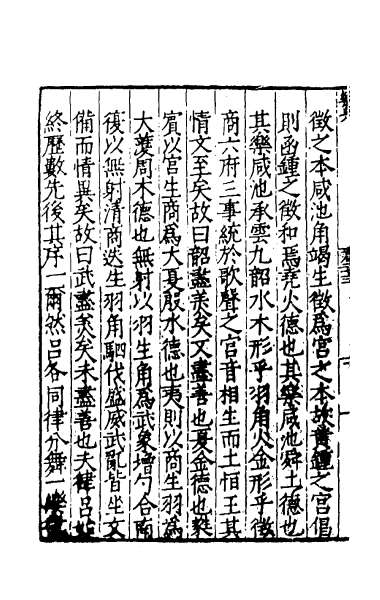 徵之本咸池角竭生徵為宮之本故黃鍾之宮倡
則函鍾之徵和焉堯火德也其樂咸池舜土德也
其樂咸池承雲九韶水木形乎羽角火金形乎徵
商六府三事統於歌聲之宮音相生而土恒王其
情文至矣故曰韶盡美矣又盡善也夏金德也甤
賓以宮生商為大夏殷水德也夷則以商生羽為
大濩周木德也無射以羽生角為武象增勺合南
復以無射清商迭生羽角駟伐盛威武亂皆坐文
備而情異矣故曰武盡美矣未盡善也夫律呂始
終歷數先後其序一爾然呂各同律分舞一樂